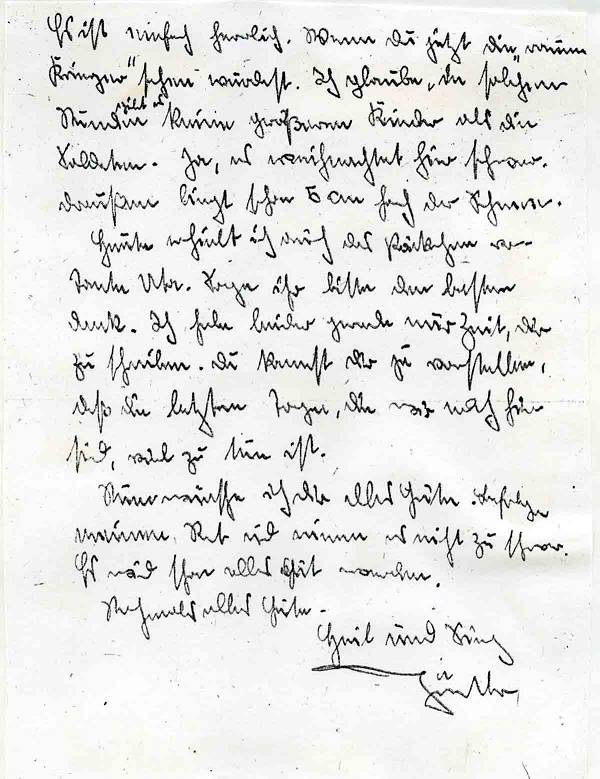 Es ist einfach herrlich. Wenn du jetzt die „rauen
Krieger" sehen würdest. Ich glaube, in solchen
Stunden gibt es keine größeren Kinder als die
Soldaten. Ja, es weihnachtet hier schwer.
draußen liegt schon 5 cm hoch der Schnee.
Heute erhielt ich auch das Päckchen von
Tante Uta. Sage ihr bitte den besten
dank. Ich habe leider gerade nur Zeit, dir
zu schreiben. du kannst dir ja vorstellen,
daß die letzten Tage, die wir noch hier
sind, viel zu tun ist.
Nun wünsche ich dir alles Gute. Befolge
meinen Rat und nimm es nicht zu schwer.
Es wird schon alles gut werden.
Nochmals alles Gute.
Heil und Sieg
Günther